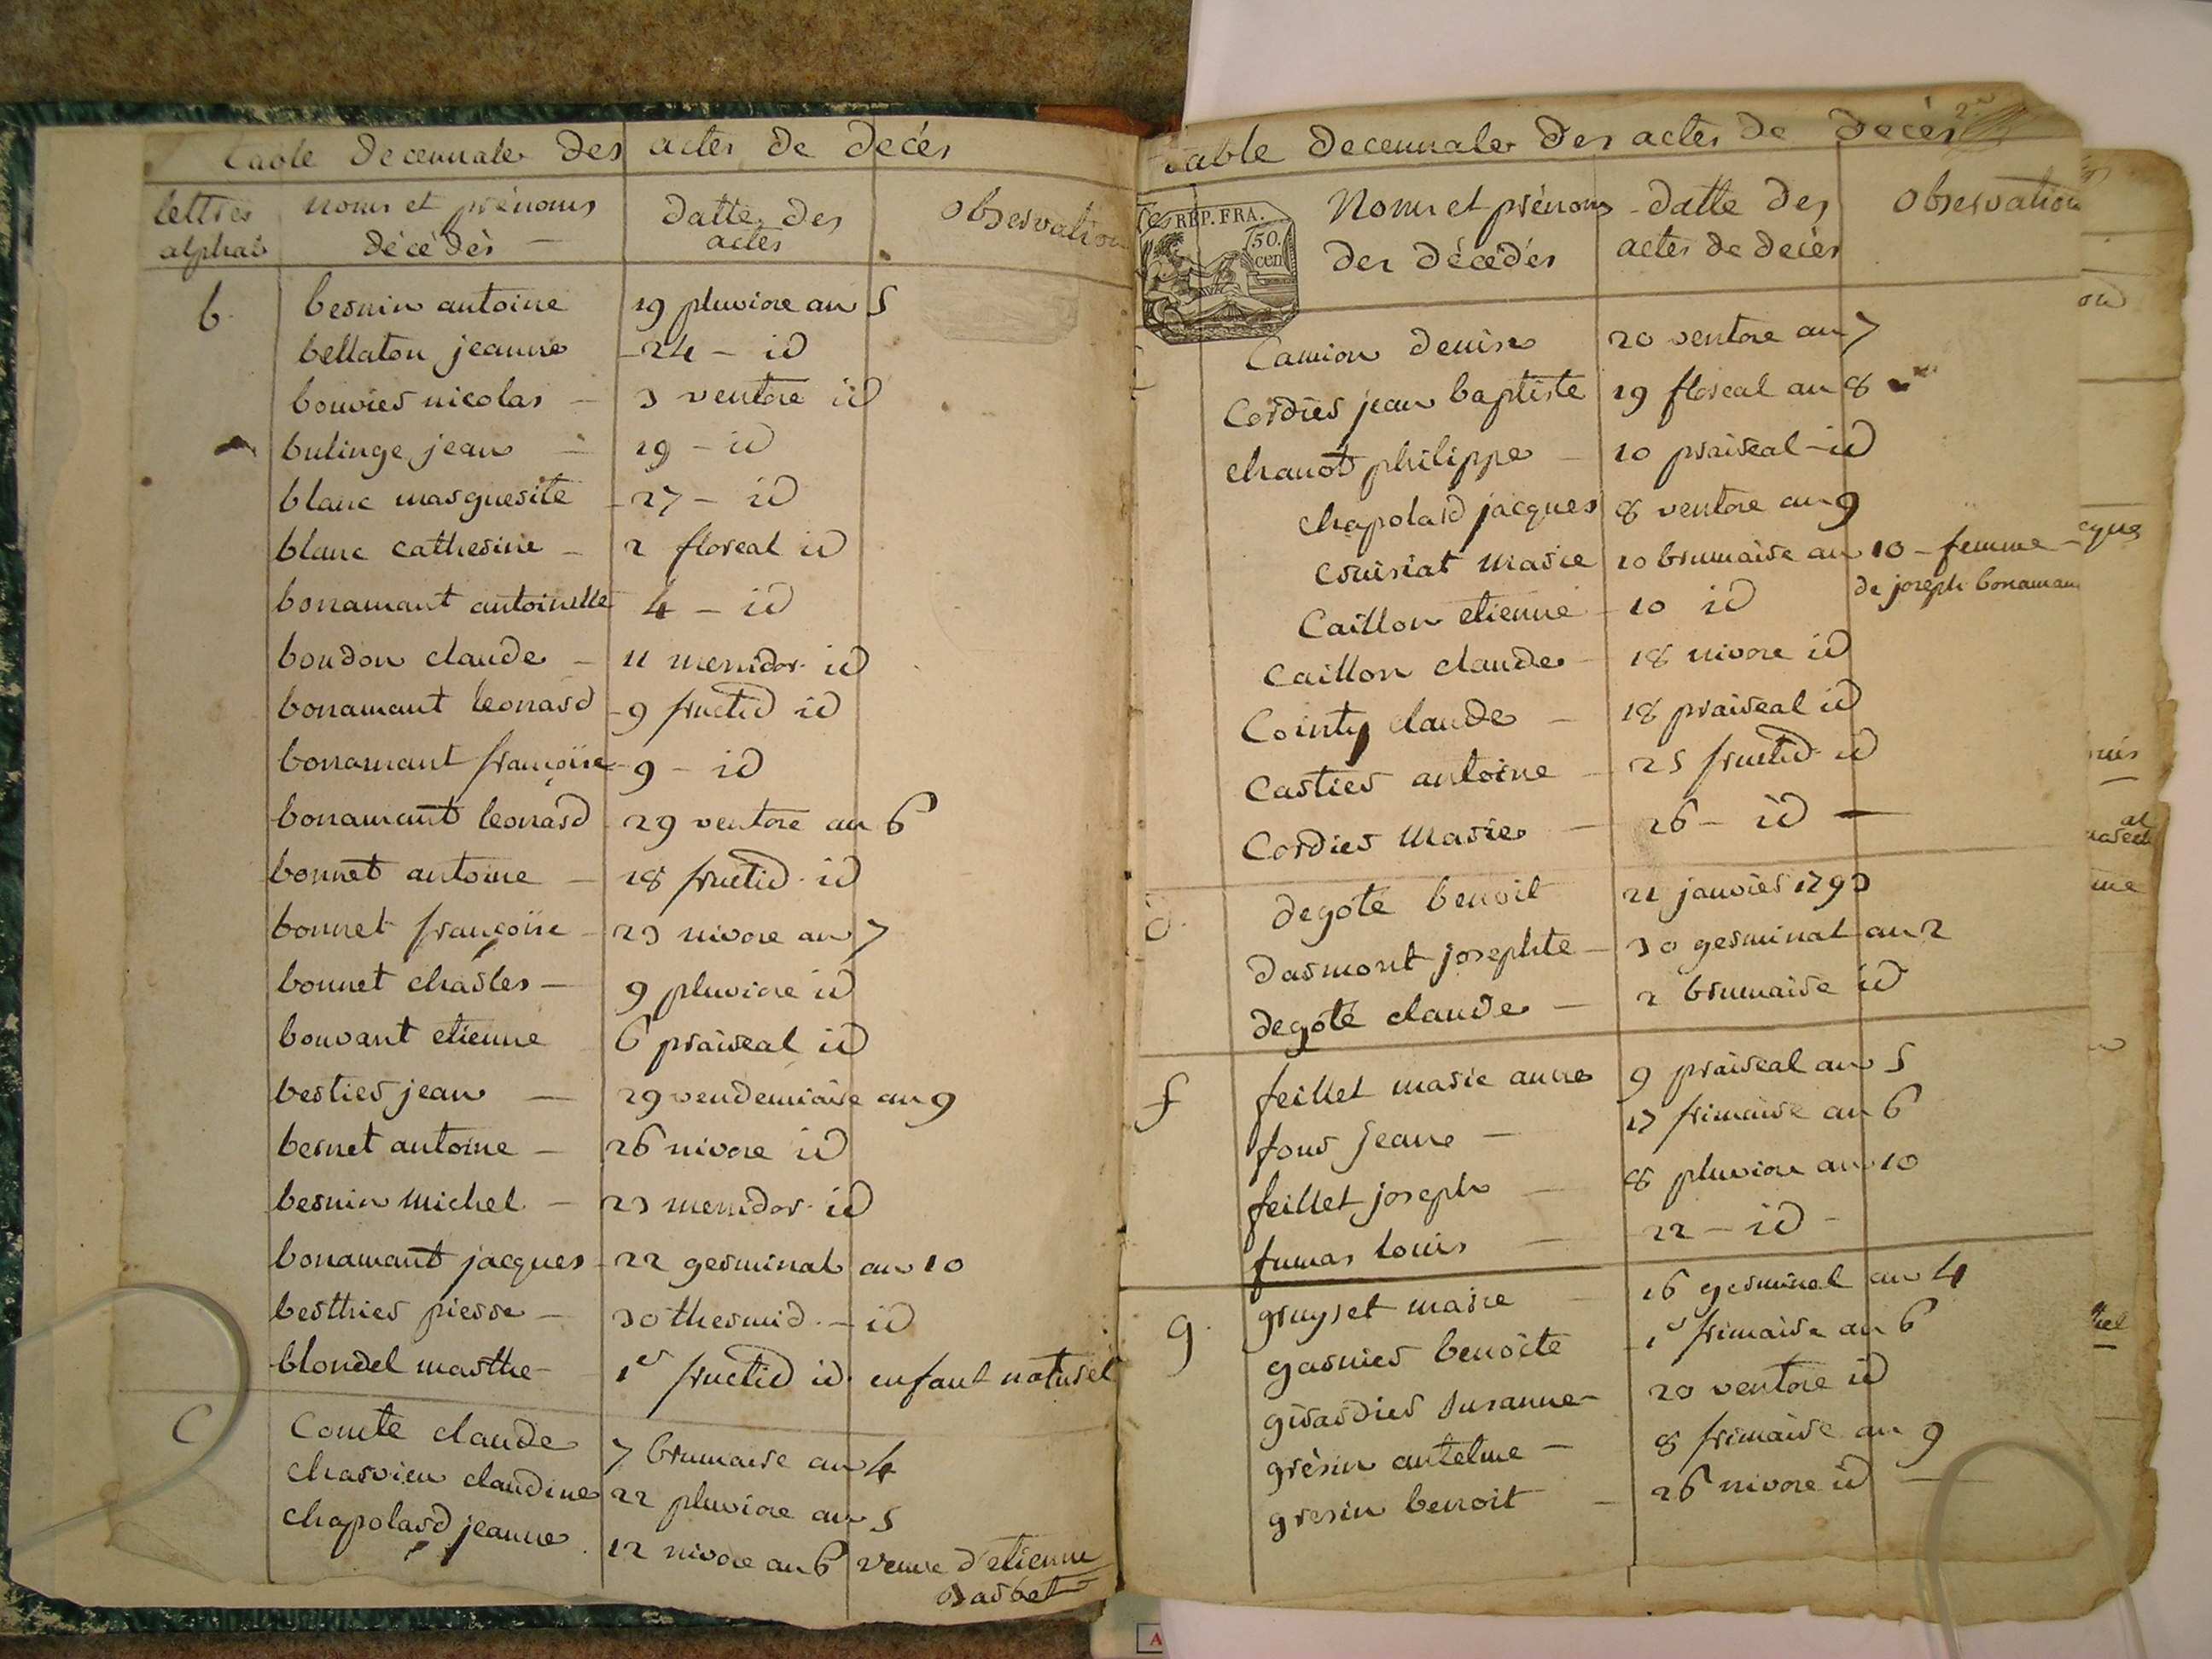 table decennale des actes de decés
lettres alphab noms et prénoms décédés datte des actes observation
b. bernin antoine 19 pluviose an 5
bellaton jeanne 24 – id
bouvier nicolas – 3 ventose id
bulinge jean – 19 – id
blanc marguerite 27 – id
blanc catherine – 2 floreal id
bonamant antoinette 4 – id
boudon claude – 11 messidor id
bonamant leonard 9 fructid id
bonamant françoise 9 – id
bonamant leonard 29 ventose an 6
bonnet antoine – 18 fructid. id
bonnet françoise 23 nivose an 7
bonnet charles – 9 pluviose id
bouvant etienne 6 prairéal id
bertier jean – 29 vendemiaire an 9
bernet antoine – 26 nivose id
bernin michel – 23 messidor id
bonamant jacques 22 germinal an 10
berthier pierre – 30 thermid. – id
blondel marthe – 1er fructid id. enfant naturel
C Comte claude 7 brumaire an 4
charvieu claudine 22 pluviose an 5
chapolard jeanne. 12 nivose an 6 veuve d'etienne
barbet
table decennale des actes de decés
2e
REP. FRA.
50.
cen
Noms et prénoms des décédés datte des actes de decés observation
Camion denise 20 ventose an 7
Cordier jean baptiste 19 floreal an 8
chanot philippe – 10 prairéal – id
chapolard jacques 8 ventose an 9
cruisiat marie 10 brumaire an 10 – femme
de joseph bonaman
Caillon etienne – 10 id
Caillon claude – 18 nivose id
Cointy claude – 18 prairéal id
Cartier antoine – 25 fructid. id
Cordier marie – 26 – id –
d. degote benoit 21 janvier 1793
darmont josephte – 30 germinal an 2
degote claude – 2 brumaire id
f feillet marie anne 9 prairéal an 5
four jeane – 17 frimaire an 6
feillet joseph – 8 pluviose an 10
fumas louis – 22 – id –
g. gruyset marie – 16 germinal an 4
garnier benoite 1er frimaire an 6
girardier susanne – 20 ventose id
grésin antelme – 8 frimaire an 9
gresin benoit – 26 nivose id –